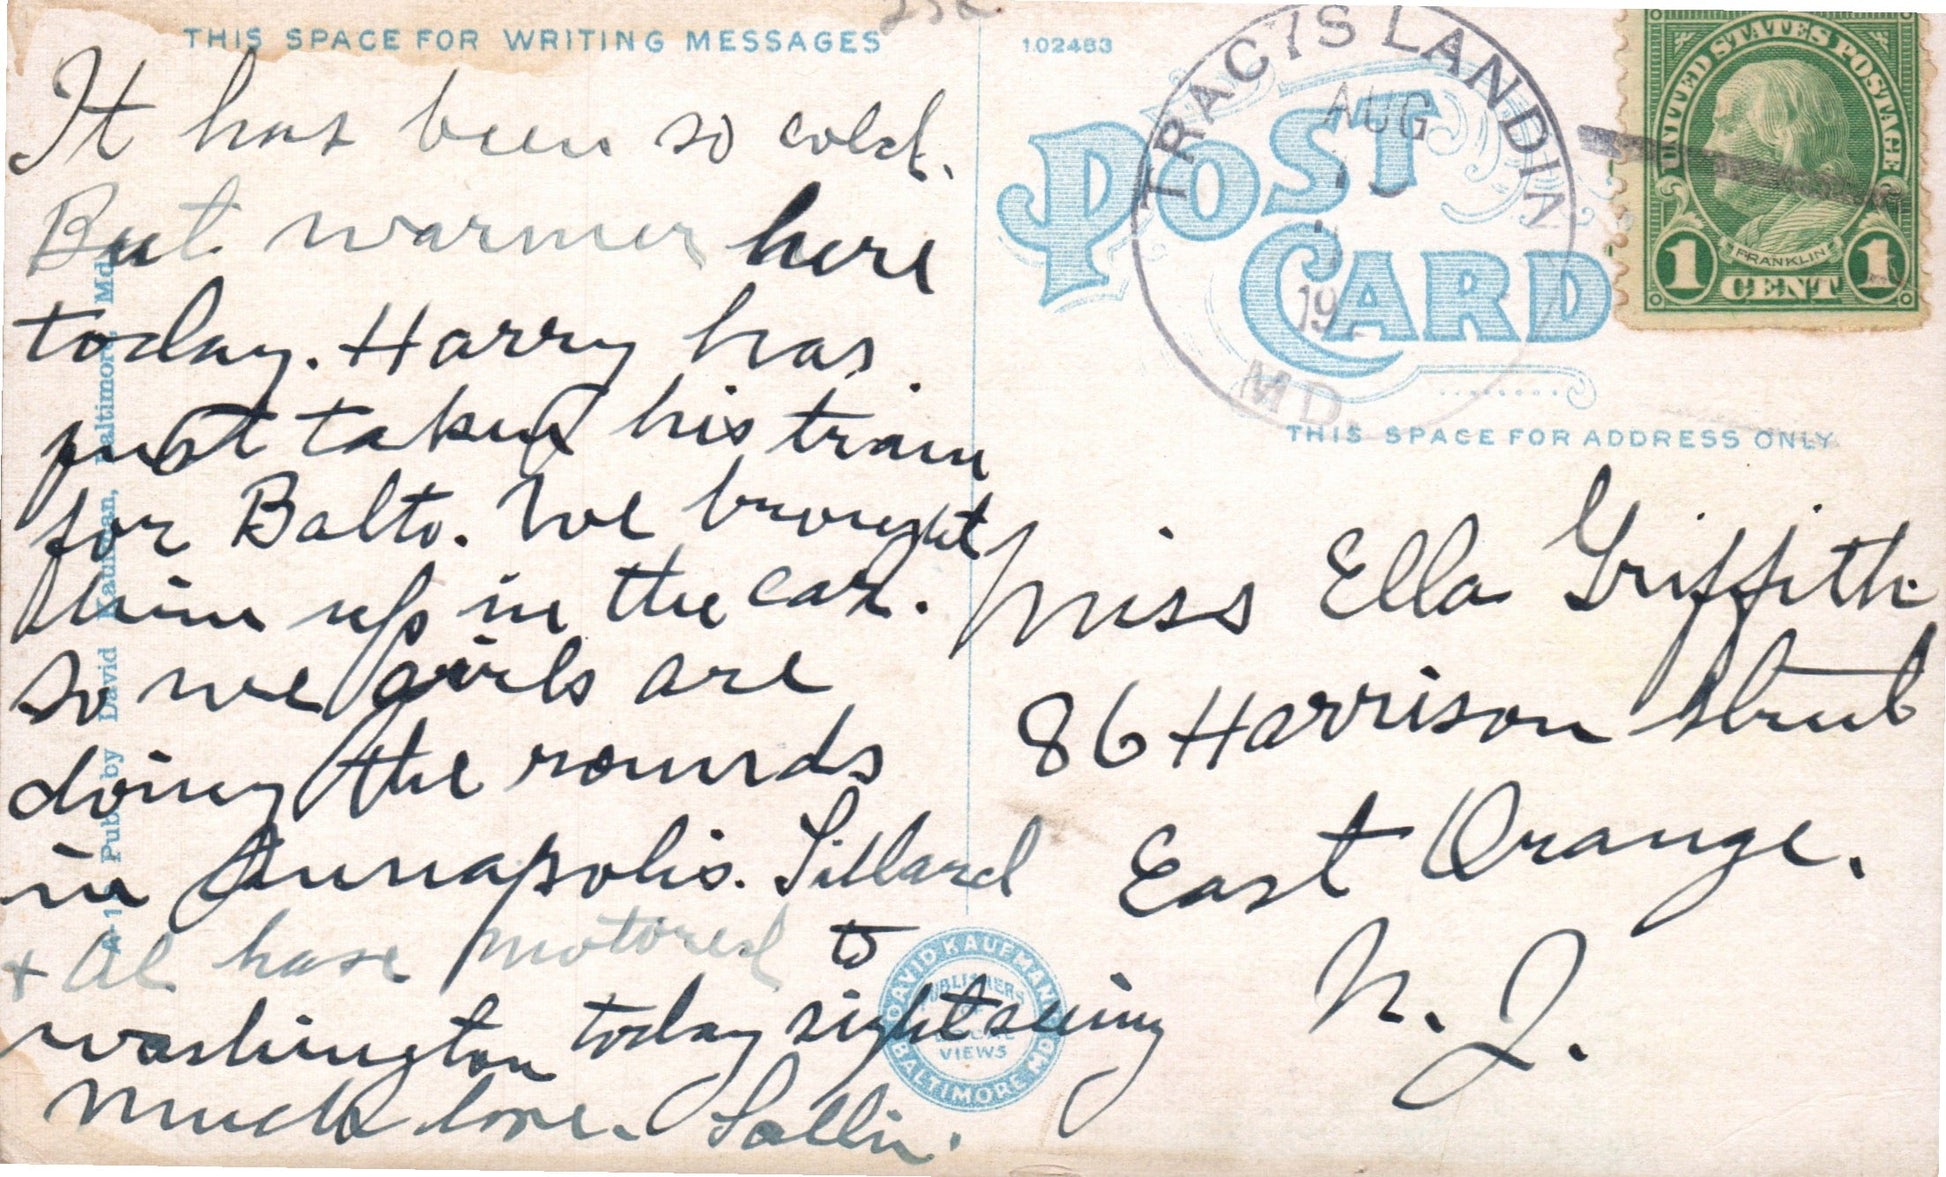 THIS SPACE FOR WRITING MESSAGES
It has been so cold.
But warmer here
today. Harry has
just taken his train
for Balto. We brought
him up in the car.
So we girls are
doing the rounds
in Annapolis. Lillard
+ Al have motored to
Washington today sightseeing
Much love. Sallie.
A-1 Pub by David Kaufman, Baltimore, Md.
102483
POST
CARD
TRACYS LANDIN
AUG
19
MD.
UNITED STATES POSTAGE
FRANKLIN
1 CENT 1
THIS SPACE FOR ADDRESS ONLY
Miss Ella Griffith
86 Harrison Street
East Orange.
N. J.
DAVID KAUFMANN
PUBLISHERS
VIEWS
BALTIMORE MD